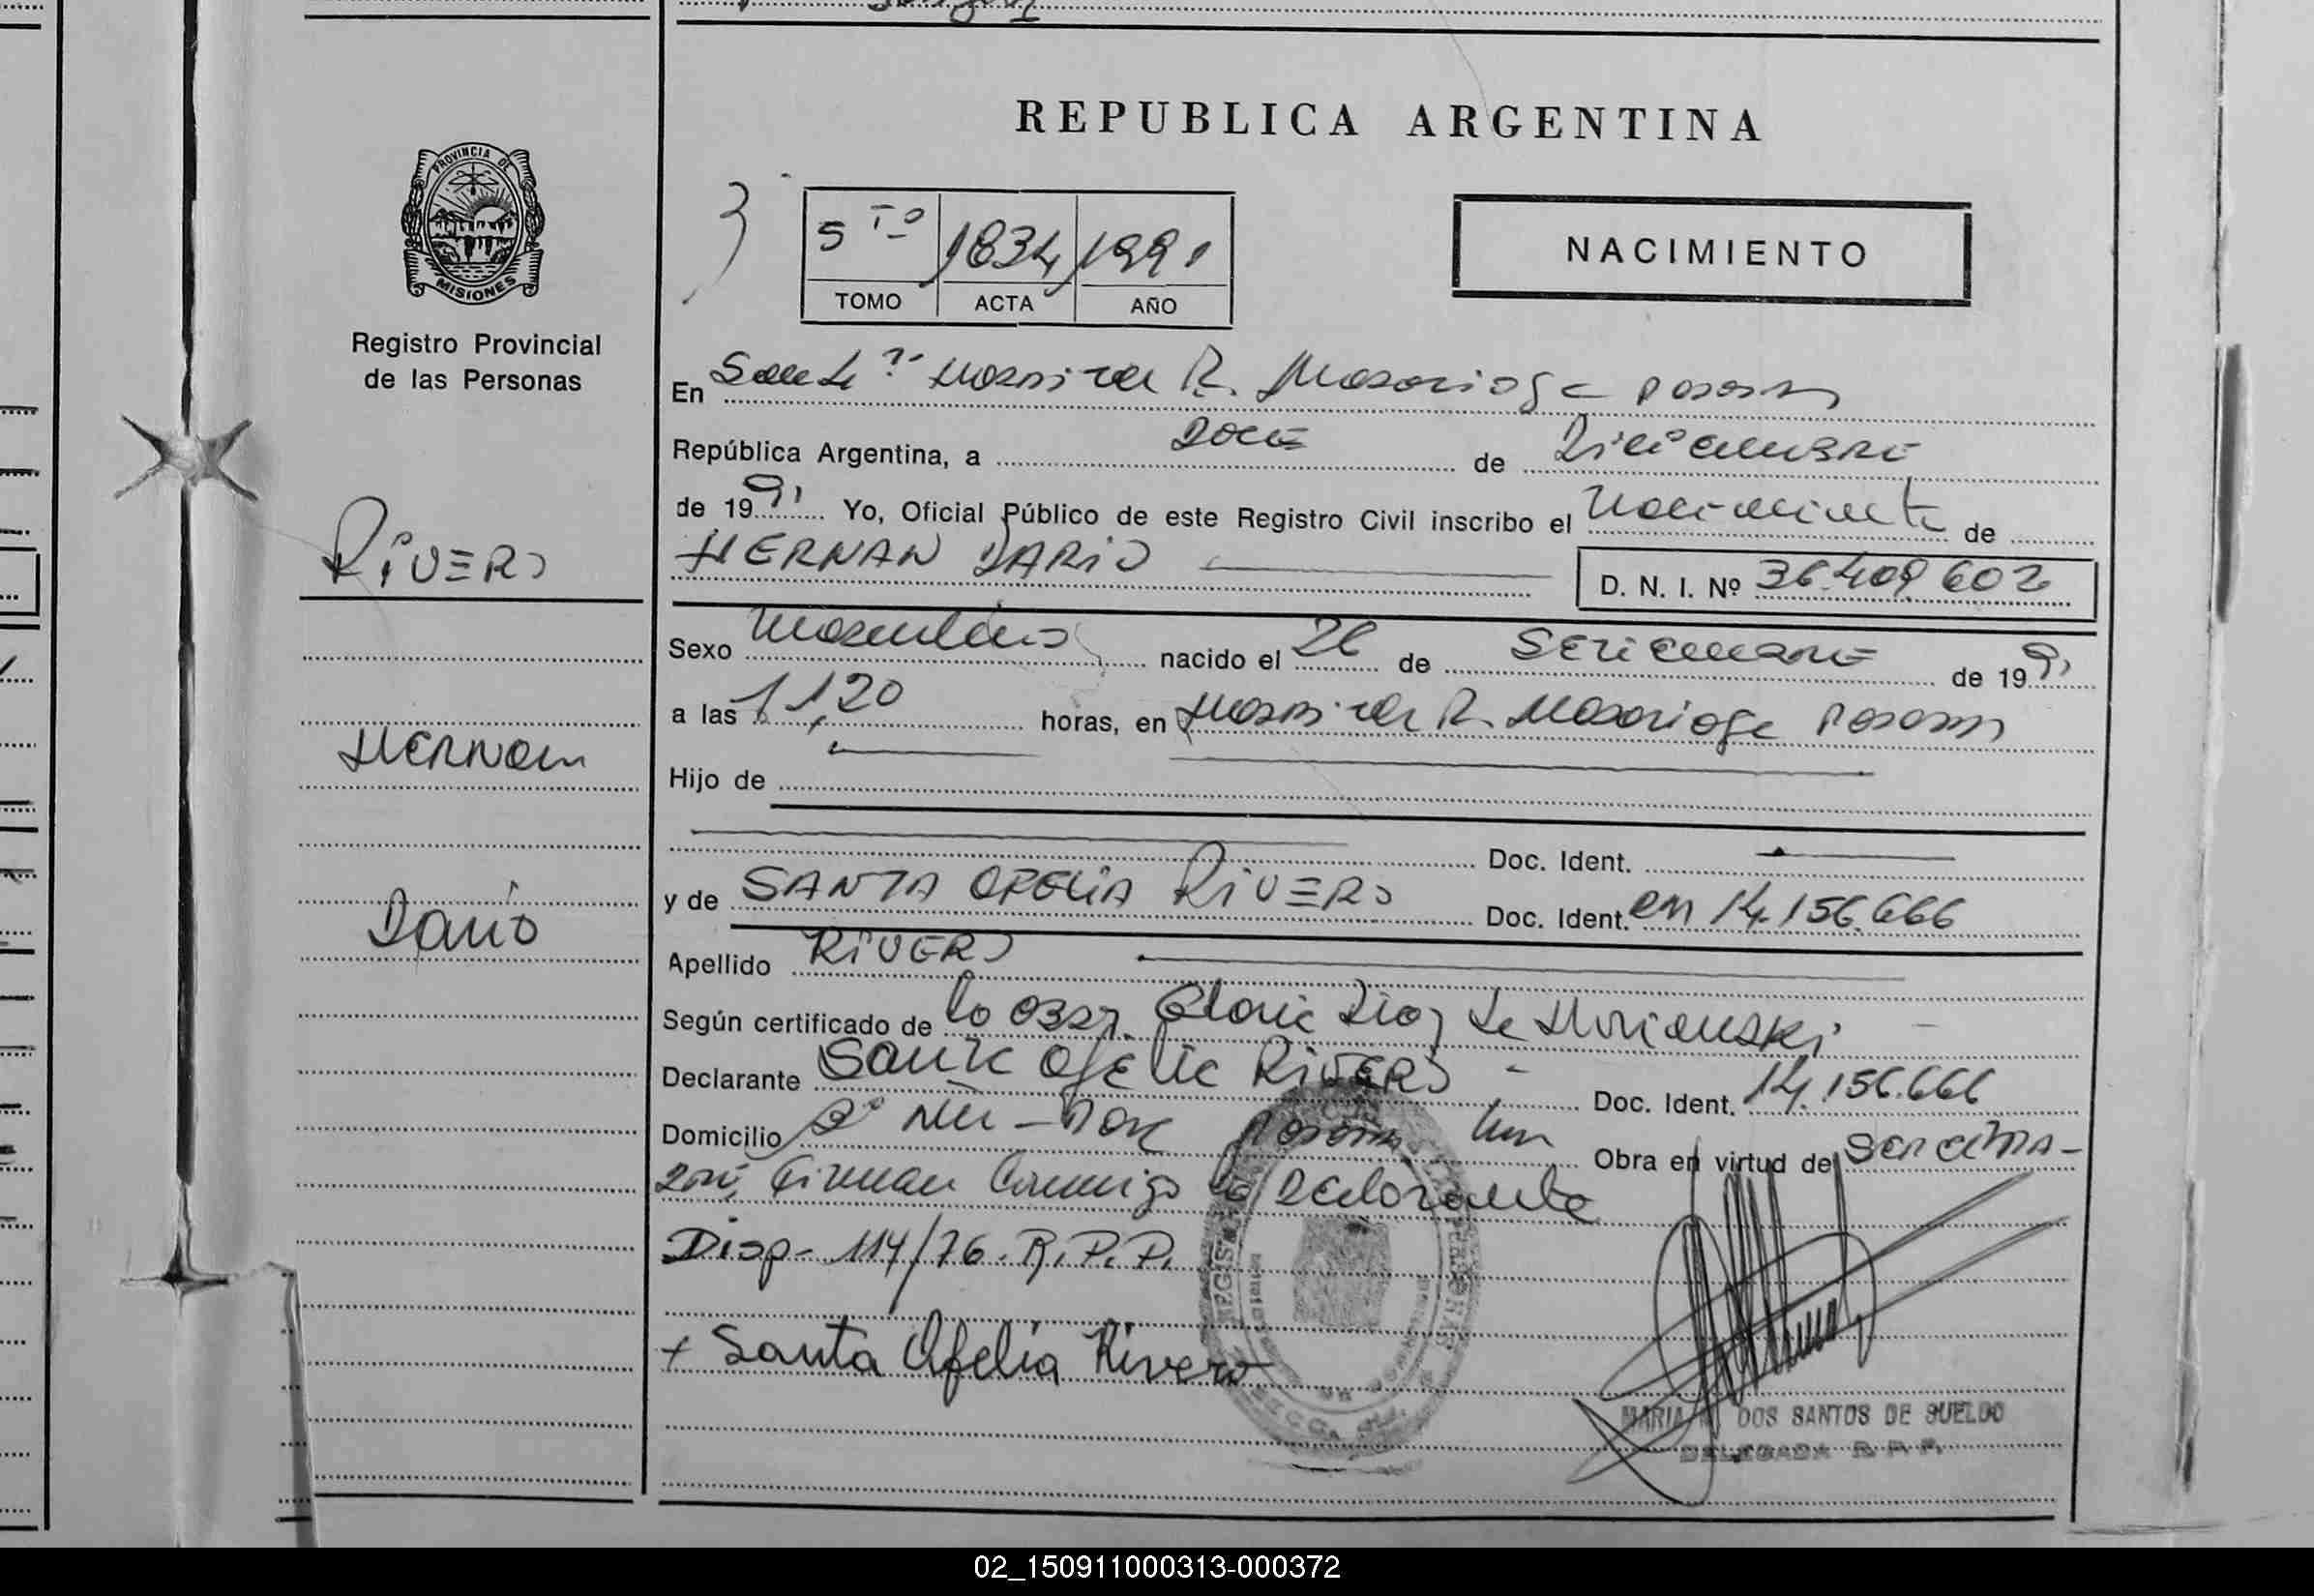 REPUBLICA ARGENTINA
PROVINCIA DE
MISIONES
Registro Provincial
de las Personas
5 TO 1834 1991
TOMO ACTA AÑO
NACIMIENTO
En R. Madariaga Posadas
República Argentina, a DOCE de Diciembre
de 1991 Yo, Oficial Público de este Registro Civil inscribo el Nacimiento de
RIVERO
HERNAN DARIO D. N. I. Nº 36.409.602
Sexo Masculino nacido el 26 de SETIEMBRE de 1991
a las 11,20 horas, en R. Madariaga Posadas
HERNAN
Hijo de
Doc. Ident.
Dario
y de SANTA OFELIA RIVERO Doc. Ident. 14.156.666
Apellido RIVERO
Según certificado de la Obst. Diaz de
Declarante Santa Ofelia RIVERO - Doc. Ident. 14.156.666
Domicilio Posadas Obra en virtud de
firman conmigo la Declarante
Disp- 114/76. R.P.P.
+ Santa Ofelia Rivero
MARIA DOS SANTOS DE SUELDO
DELEGADA R. P. P.
02_150911000313-000372